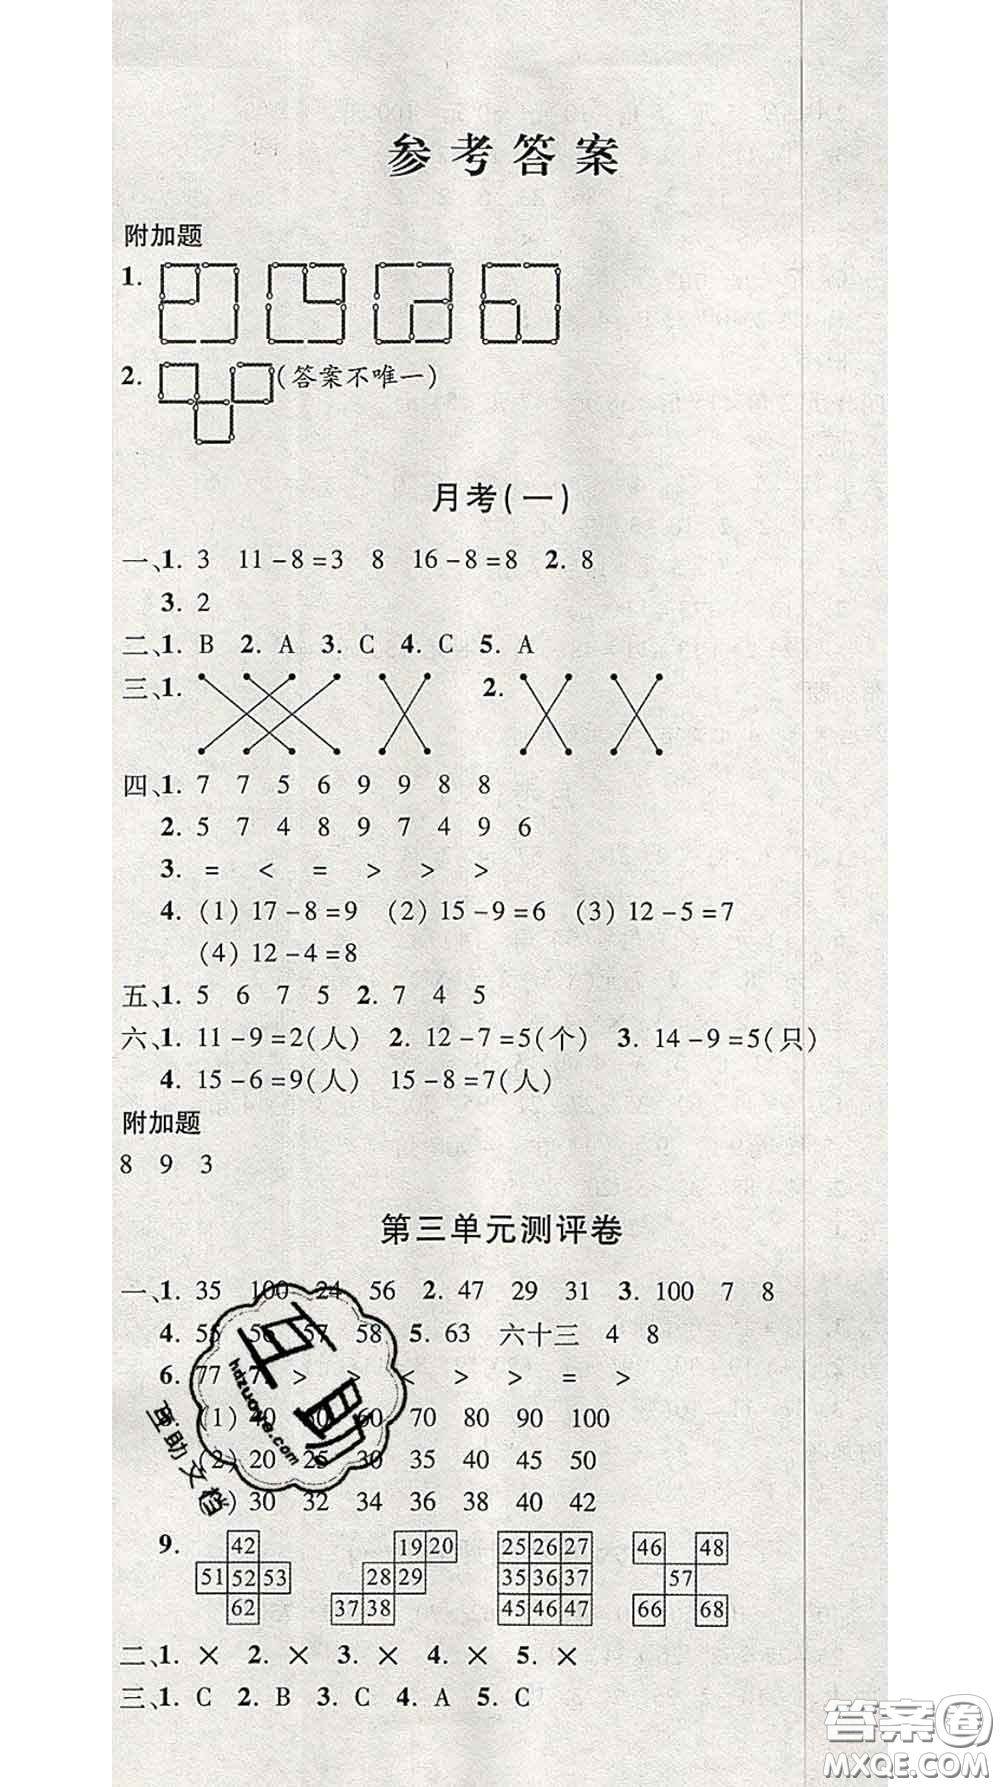 参考答案
附加题
1.
2. (答案不唯一)
月考(一)
一、1. 3 11-8=3 8 16-8=8 2. 8
3. 2
二、1. B 2. A 3. C 4. C 5. A
三、1. 2.
四、1. 7 7 5 6 9 9 8 8
2. 5 7 4 8 9 7 4 9 6
3. = < = > > >
4. (1) 17-8=9 (2) 15-9=6 (3) 12-5=7
(4) 12-4=8
五、1. 5 6 7 5 2. 7 4 5
六、1. 11-9=2(人) 2. 12-7=5(个) 3. 14-9=5(只)
4. 15-6=9(人) 15-8=7(人)
附加题
8 9 3
第三单元测评卷
一、1. 35 100 24 56 2. 47 29 31 3. 100 7 8
4. 55 56 57 58 5. 63 六十三 4 8
6. 77 > > < > > = >
(1) 40 50 60 70 80 90 100
(2) 20 25 30 35 40 45 50
) 30 32 34 36 38 40 42
9. 42 19 20 25 26 27 46 48
51 52 53 28 29 35 36 37 57
62 37 38 45 46 47 66 68
二、1. × 2. × 3. × 4. × 5. ×
三、1. C 2. B 3. C 4. A 5. C
互助
hdzuoye.com
互助文档
答案卷
MXQE.COM